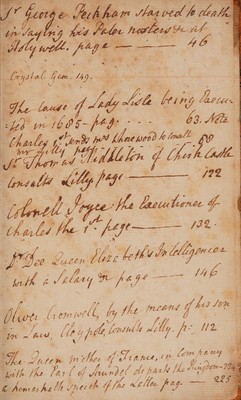 Sr George Peckham starved to death
in saying his Pater nosters &c at
Holywell. page — 46
Crystal Gem. 149.
The cause of Lady Lisle being Execu-
ted in 1685 - pag. .... 63. Note
Charles 1st sends Mrs Whorwood to consult
Mr Lilly page 58
Sr Thomas Middleton of Chirk Castle
consults Lilly page — 122
Colonell Joyce the Executioner of
Charles the 1st. page — 132.
Dr Dee Queen Elizabeths Intelligencer
with a Salary &c page — 146
Oliver Cromwell, by the means of his son
in Law, Claypole, Consults Lilly. p: 112
The Queen mother of France, in Company
with the Earl of Arundel departs the Kingdom — 224
a remarkable speech of the Latter pag. — 225